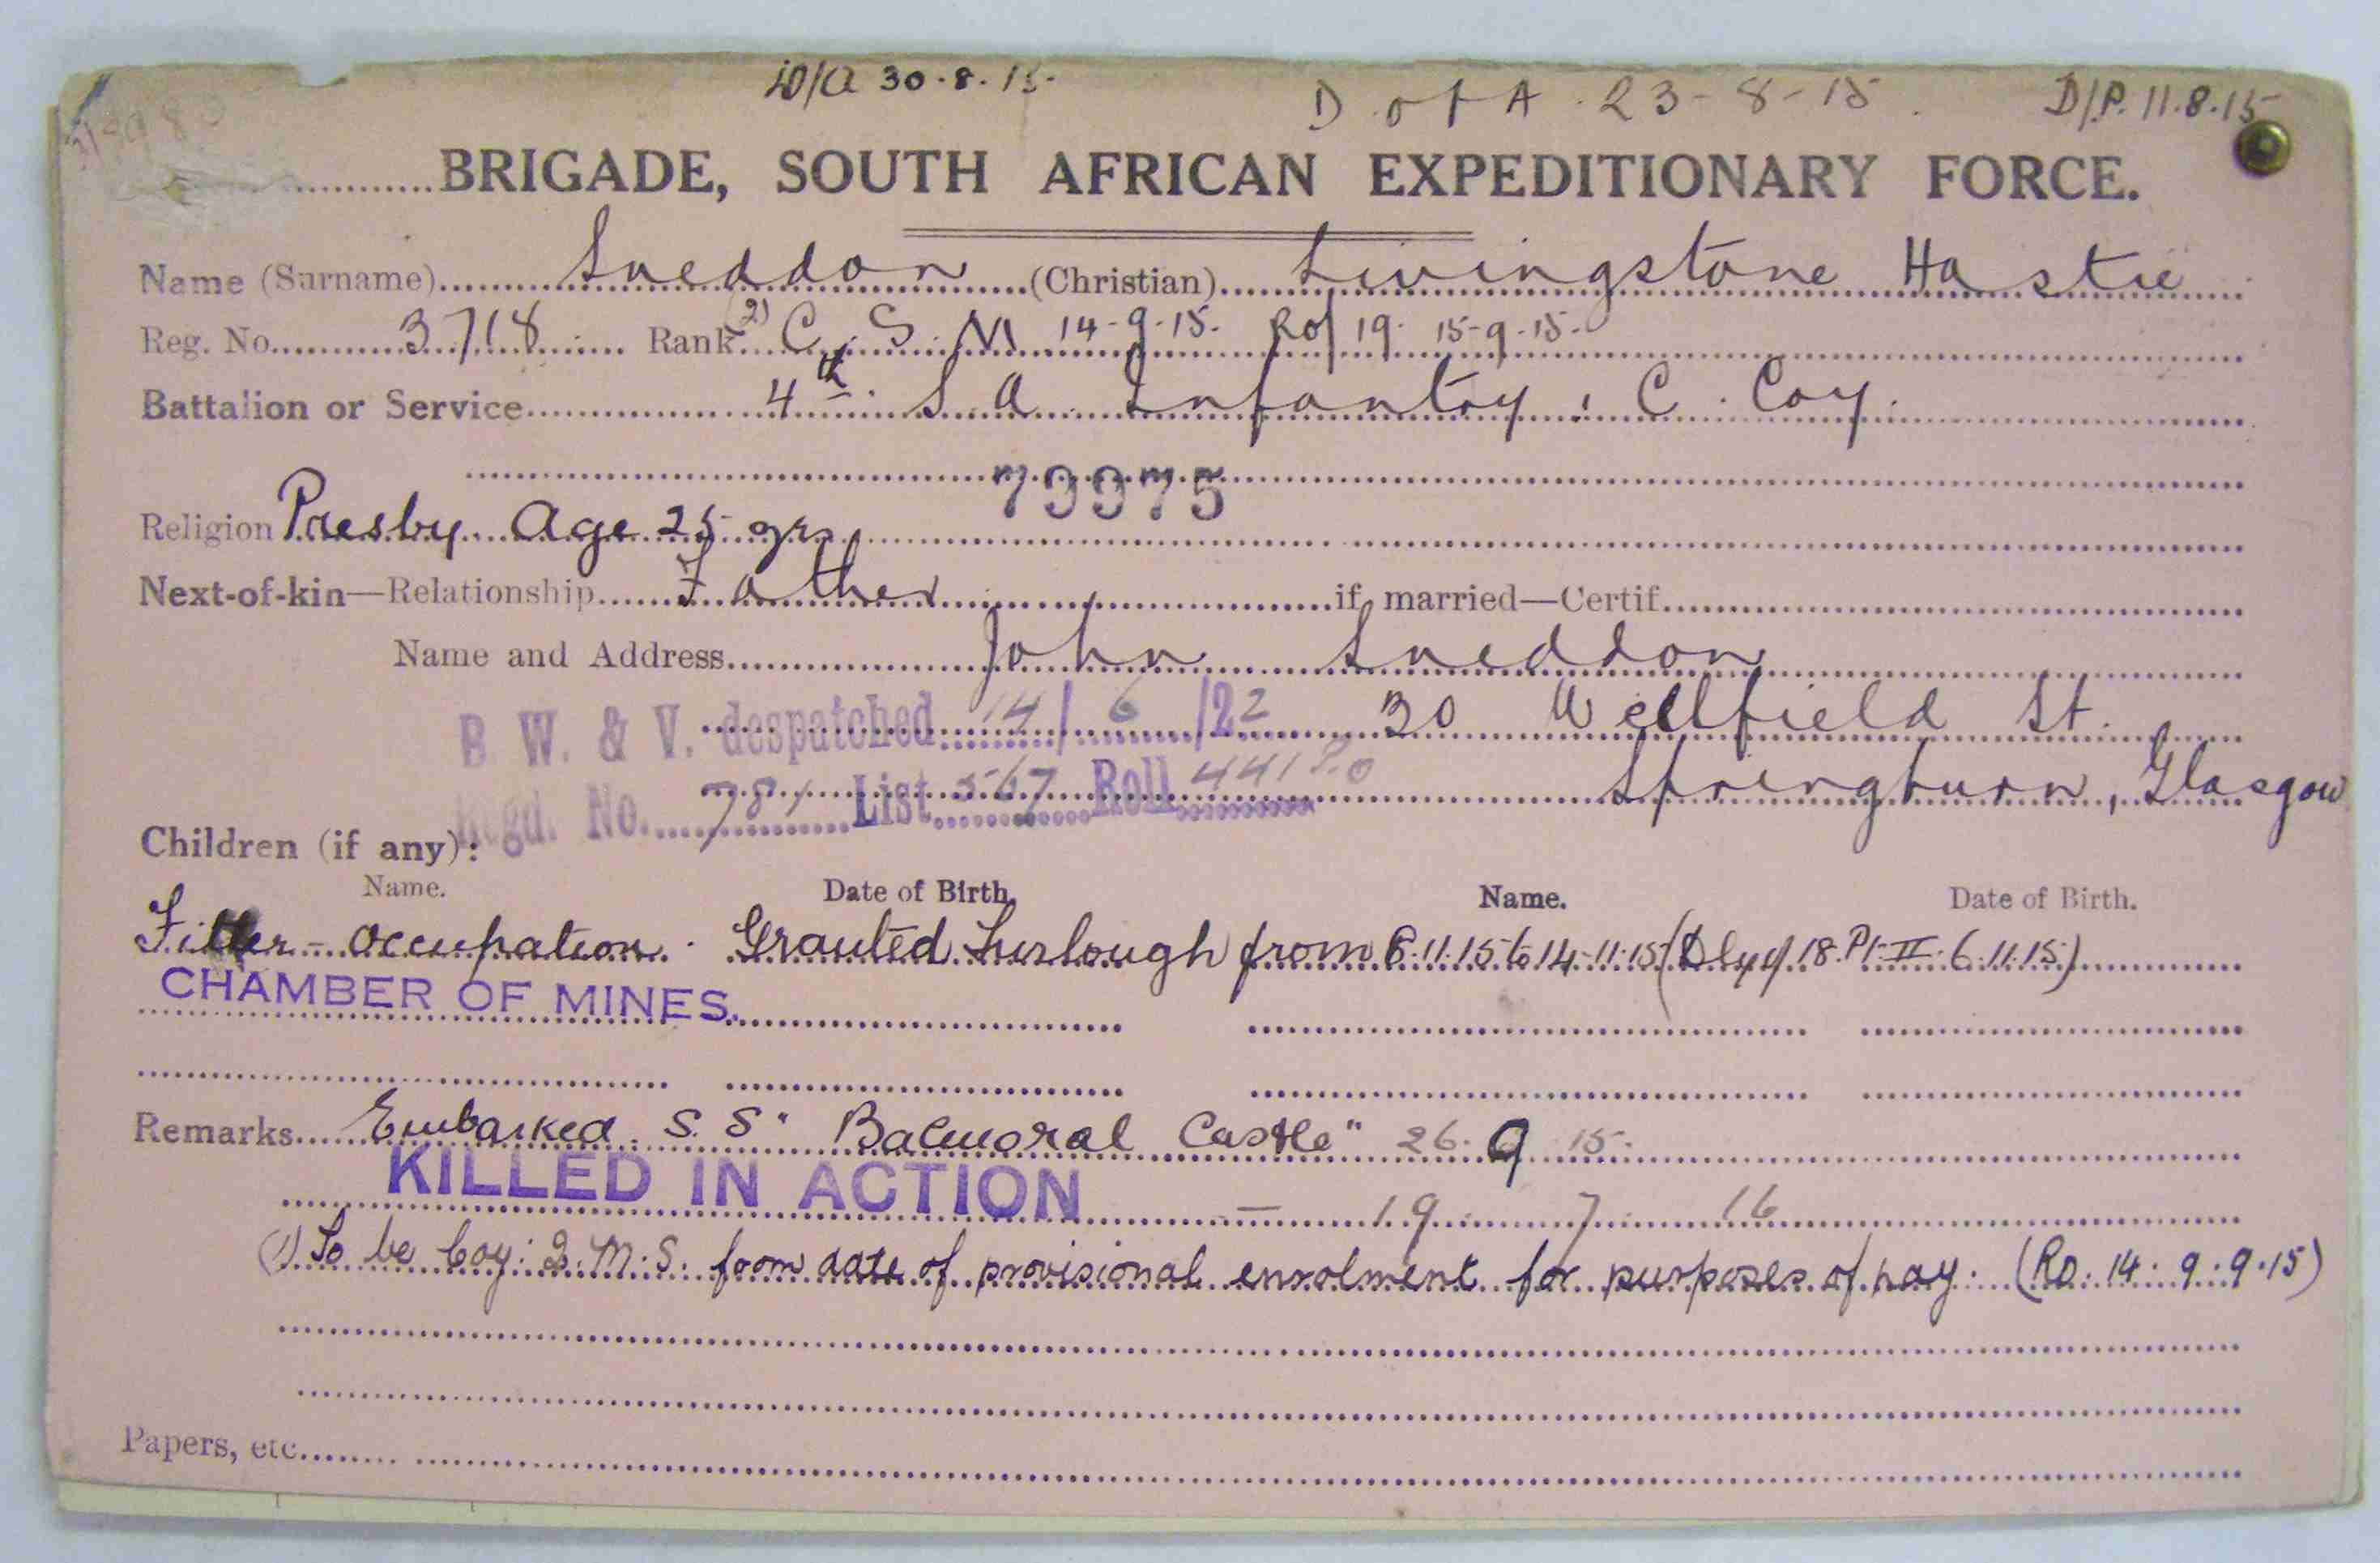 D/A 30.8.15. D of A 23-8-15. D/P. 11.8.15
BRIGADE, SOUTH AFRICAN EXPEDITIONARY FORCE.
Name (Surname) Sneddon (Christian) Livingstone Hastie
Reg. No. 3718 Rank 2) C. S. M 14-9-15. RO/19. 15-9-15.
Battalion or Service 4th S. A. Infantry, C. Coy.
79975
Religion Presby. Age 25 yrs
Next-of-kin—Relationship Father if married—Certif.
Name and Address John Sneddon
B. W. & V. despatched 14/6/22 30 Wellfield St.
Regd. No. 781 List 567 Roll Springburn, Glasgow
Children (if any):
Name. Date of Birth. Name. Date of Birth.
Fitter - Occupation. Granted Furlough from 8.11.15 to 14-11-15 18. Pt. II. 6.11.15)
CHAMBER OF MINES.
Remarks Embarked S. S. "Balmoral Castle" 26. 9 15.
KILLED IN ACTION — 19 7 16
(1) To be Coy: Q.M.S. from date of provisional enrolment for purposes of pay: (Ro. 14: 9.9.15)
Papers, etc.